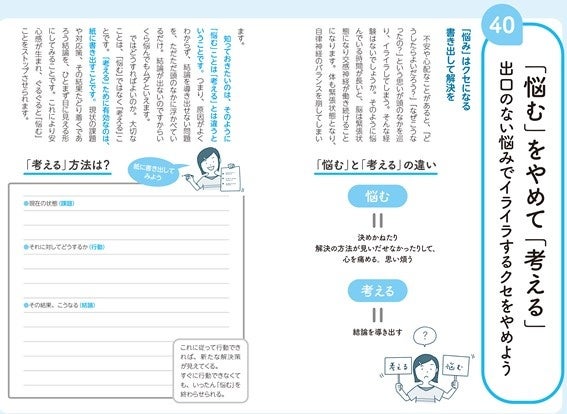 40
「悩む」をやめて「考える」
出口のない悩みでイライラするクセをやめよう
「悩み」はクセになる
書き出して解決を
不安や心配なことがあると、「ど
うしたらよいだろう？」「なぜこうな
ったの？」という思いが頭のなかを巡
り、イライラしてしまう。そんな経
験はないでしょうか。そのように悩
んでいる時間が長いと、脳は緊張状
態になり交感神経が働き続けること
になります。体も緊張状態となり、
自律神経のバランスを崩してしまい
ます。
知っておきたいのは、そのように
「悩む」ことは「考える」とは違うと
いうことです。つまり、原因がよく
わからず、結論を導き出せない問題
を、ただただ頭のなかに浮かべてい
るだけ。結論が出ないのですからい
くら悩んでもムダといえます。
ではどうすればよいのか。大切な
ことは、「悩む」ではなく「考える」こ
とです。「考える」ために有効なのは、
紙に書き出すことです。現状の課題
や対応策、その結果たどり着くであ
ろう結論を、ひとまず目に見える形
にしてみることです。これにより安
心感が生まれ、ぐるぐると「悩む」
ことをストップさせられます。
「悩む」と「考える」の違い
悩む
決めかねたり
解決の方法が見いだせなかったりして、
心を痛める。思い煩う
考える
結論を導き出す
?
考える
悩む
「考える」方法は？
紙に書き出して
みよう
●現在の状態（課題）
●それに対してどうするか（行動）
●その結果、こうなる（結論）
これに従って行動でき
れば、新たな解決策
が見えてくる。
すぐに行動できなくて
も、いったん「悩む」を
終わらせられる。